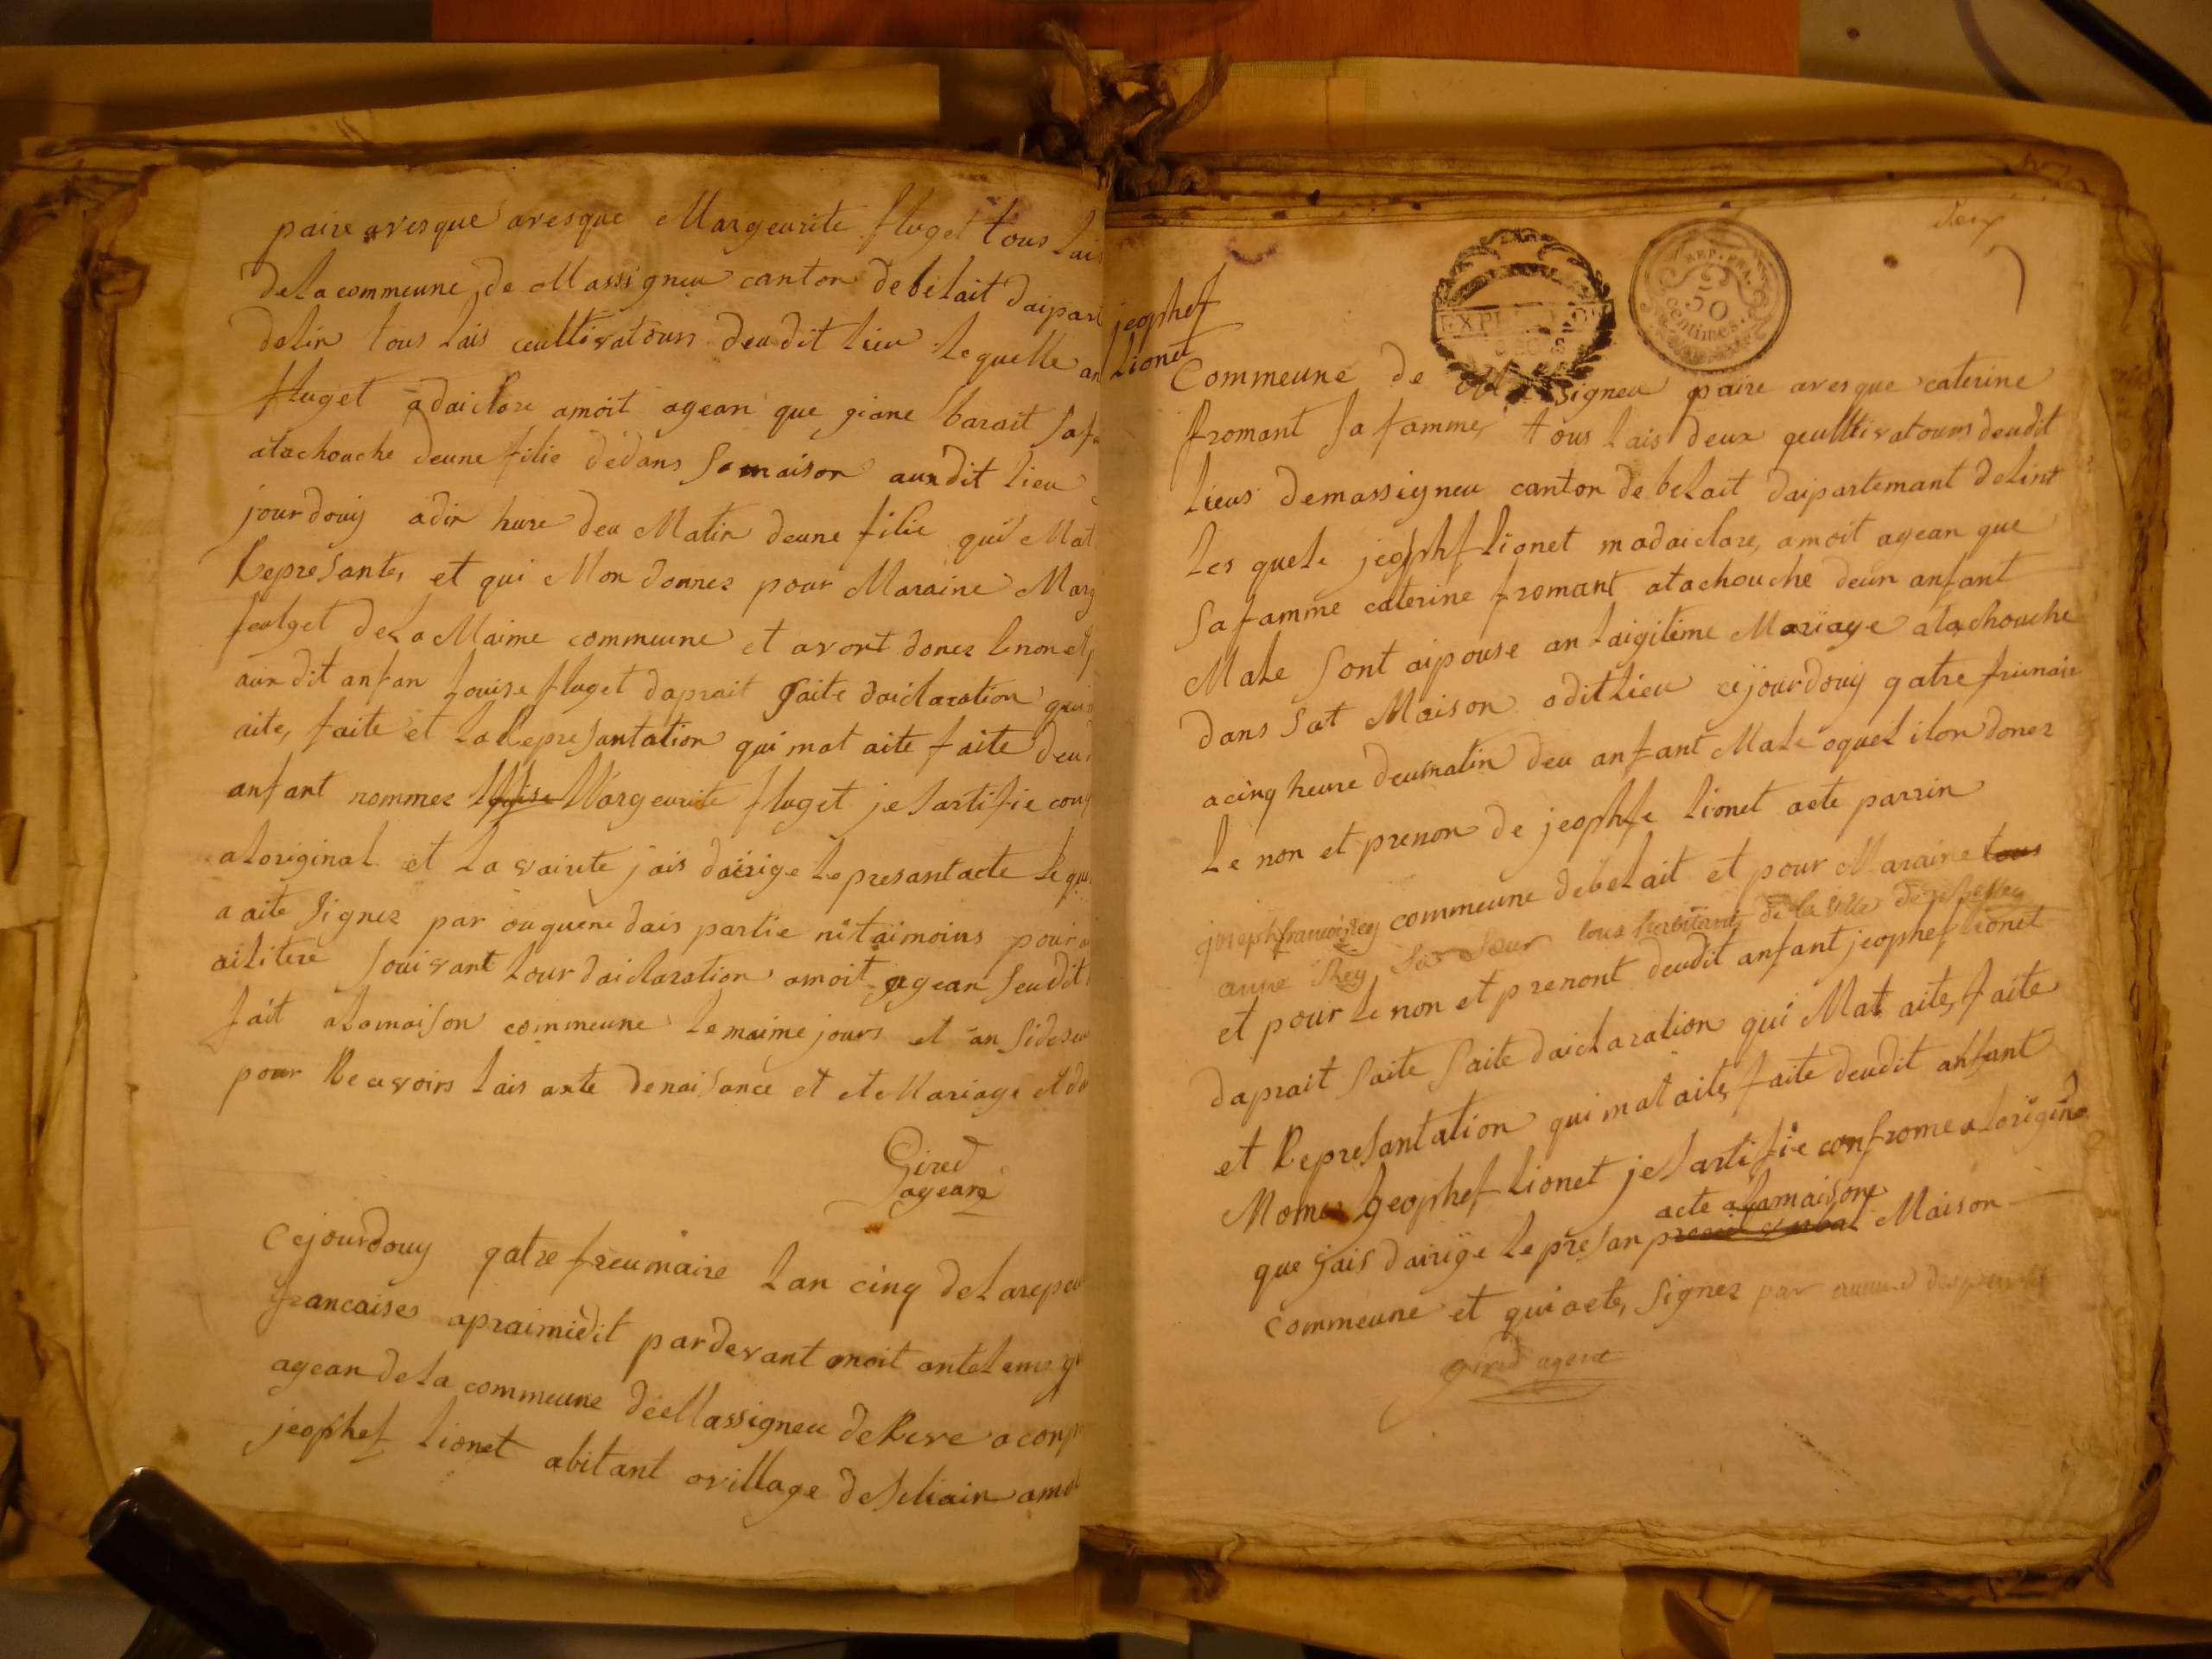 paire avesque avesque Margeurite fluget tous lais
dela commeune de Massigneu canton debelait daipar
delin tous lais ceultivatours deudit lieu lequelle an
fluget adaiclare amoit agean que giane barait safa
atachouche deune filie dédans samaison audit lieu
jourdouy adix hure deu Matin deune filie qui Mat
Represante, et qui Mon donnez pour Maraine Marg
feulget dela Maime commeune et avont donez lenon et
audit anfan Louise fluget daprait saite daiclaration qui
aite, faite et la Represantation qui mat aite faite deu
anfant nommez Margeurite fluget je sartifie conf
aloriginal et la vairite jais dairige le presant acte le qu
a aite signez par ouquene dais partie ni taimoins pour
ailitere souivant lour daiclaration amoit agean seudit
fait alamaison commeune lemaime jours et an sideseu
pour Recevoirs lais axte denaisance et de Mariage et de
Gired
agean
Cejourdouy qatre freumaire lan cinq delarepeu
francaises apraimiedit pardevant moit antelme gi
agean dela commeune de Massigneu deRive aconp
jeophef lionet abitant ovillage de amoi
deux
EXP
REP. FRA.
50
centimes.
jeophef
lionet
Commeune de Massigneu paire avesque caterine
fromant sa famme, tous lais deux qeultivatours deudit
lieus demassigneu canton de belait daipartemant delint
les quele jeophf lionet madaiclare, amoit agean que
safamme caterine fromant atachouche deun anfant
Male sont aipouse an laigitime Mariage atachouche
dans sat Maison oditlieu cejourdouy qatre frimaire
acinq heure deumatin deu anfant Male oquel ilon donez
le non et prenon de jeophfe lionet acte parrin
joseph francois Rey commeune debelait et pour Maraine tous
anne Rey sa sœur tous habitant de la ville de belley
et pour le non et prenont deudit anfant jeophef lionet
daprait saite saite daiclaration qui Mat aite, faite
et Represantation qui mat aite, faite deudit anfant
Nomez jeophef lionet je sartifie confrome aloriginal
acte alamaisone
que jais dairige le presan Maison
commeune et qui aete, signez par
gired agent